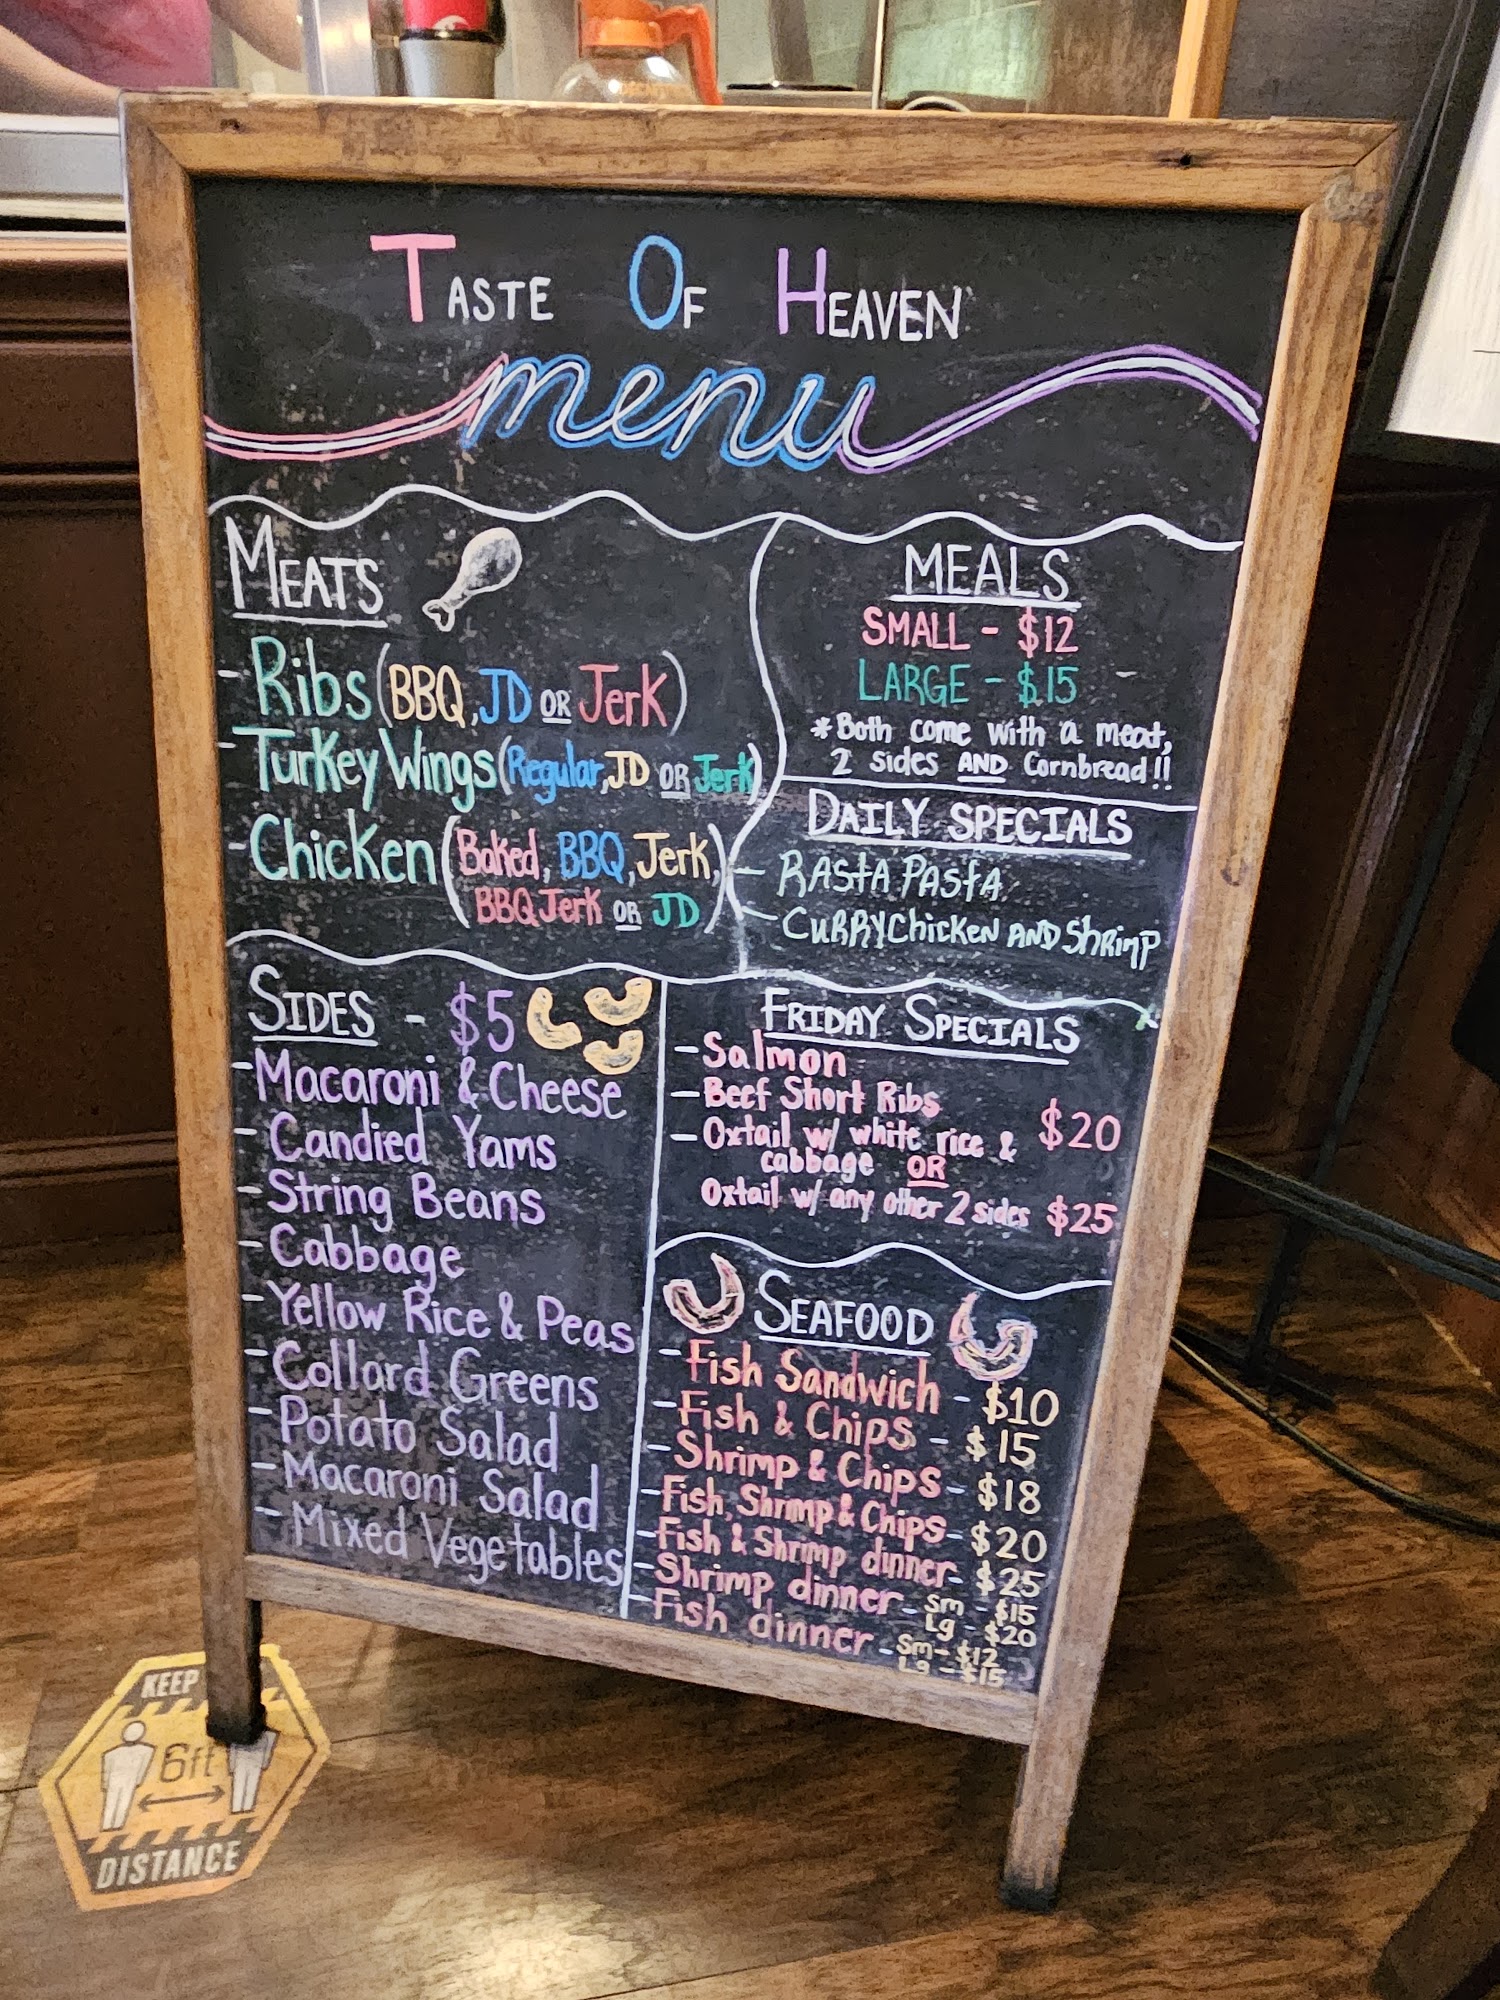 TASTE OF HEAVEN
menu
MEATS
- Ribs (BBQ, JD OR Jerk)
- Turkey Wings (Regular, JD OR Jerk)
- Chicken (Baked, BBQ, Jerk,
BBQ Jerk OR JD)
MEALS
SMALL - $12
LARGE - $15
*Both come with a meat,
2 sides AND Cornbread!!
DAILY SPECIALS
- RASTA PASTA
- CURRY Chicken AND Shrimp
SIDES - $5
- Macaroni & Cheese
- Candied Yams
- String Beans
- Cabbage
- Yellow Rice & Peas
- Collard Greens
- Potato Salad
- Macaroni Salad
- Mixed Vegetables
FRIDAY SPECIALS
- Salmon
- Beef Short Ribs
- Oxtail w/ white rice & $20
cabbage OR
Oxtail w/ any other 2 sides $25
SEAFOOD
- Fish Sandwich - $10
- Fish & Chips - $15
- Shrimp & Chips - $18
- Fish, Shrimp & Chips - $20
- Fish & Shrimp dinner - $25
- Shrimp dinner - sm - $15
Lg - $20
- Fish dinner - sm - $12
Lg - $15
KEEP
6ft
DISTANCE